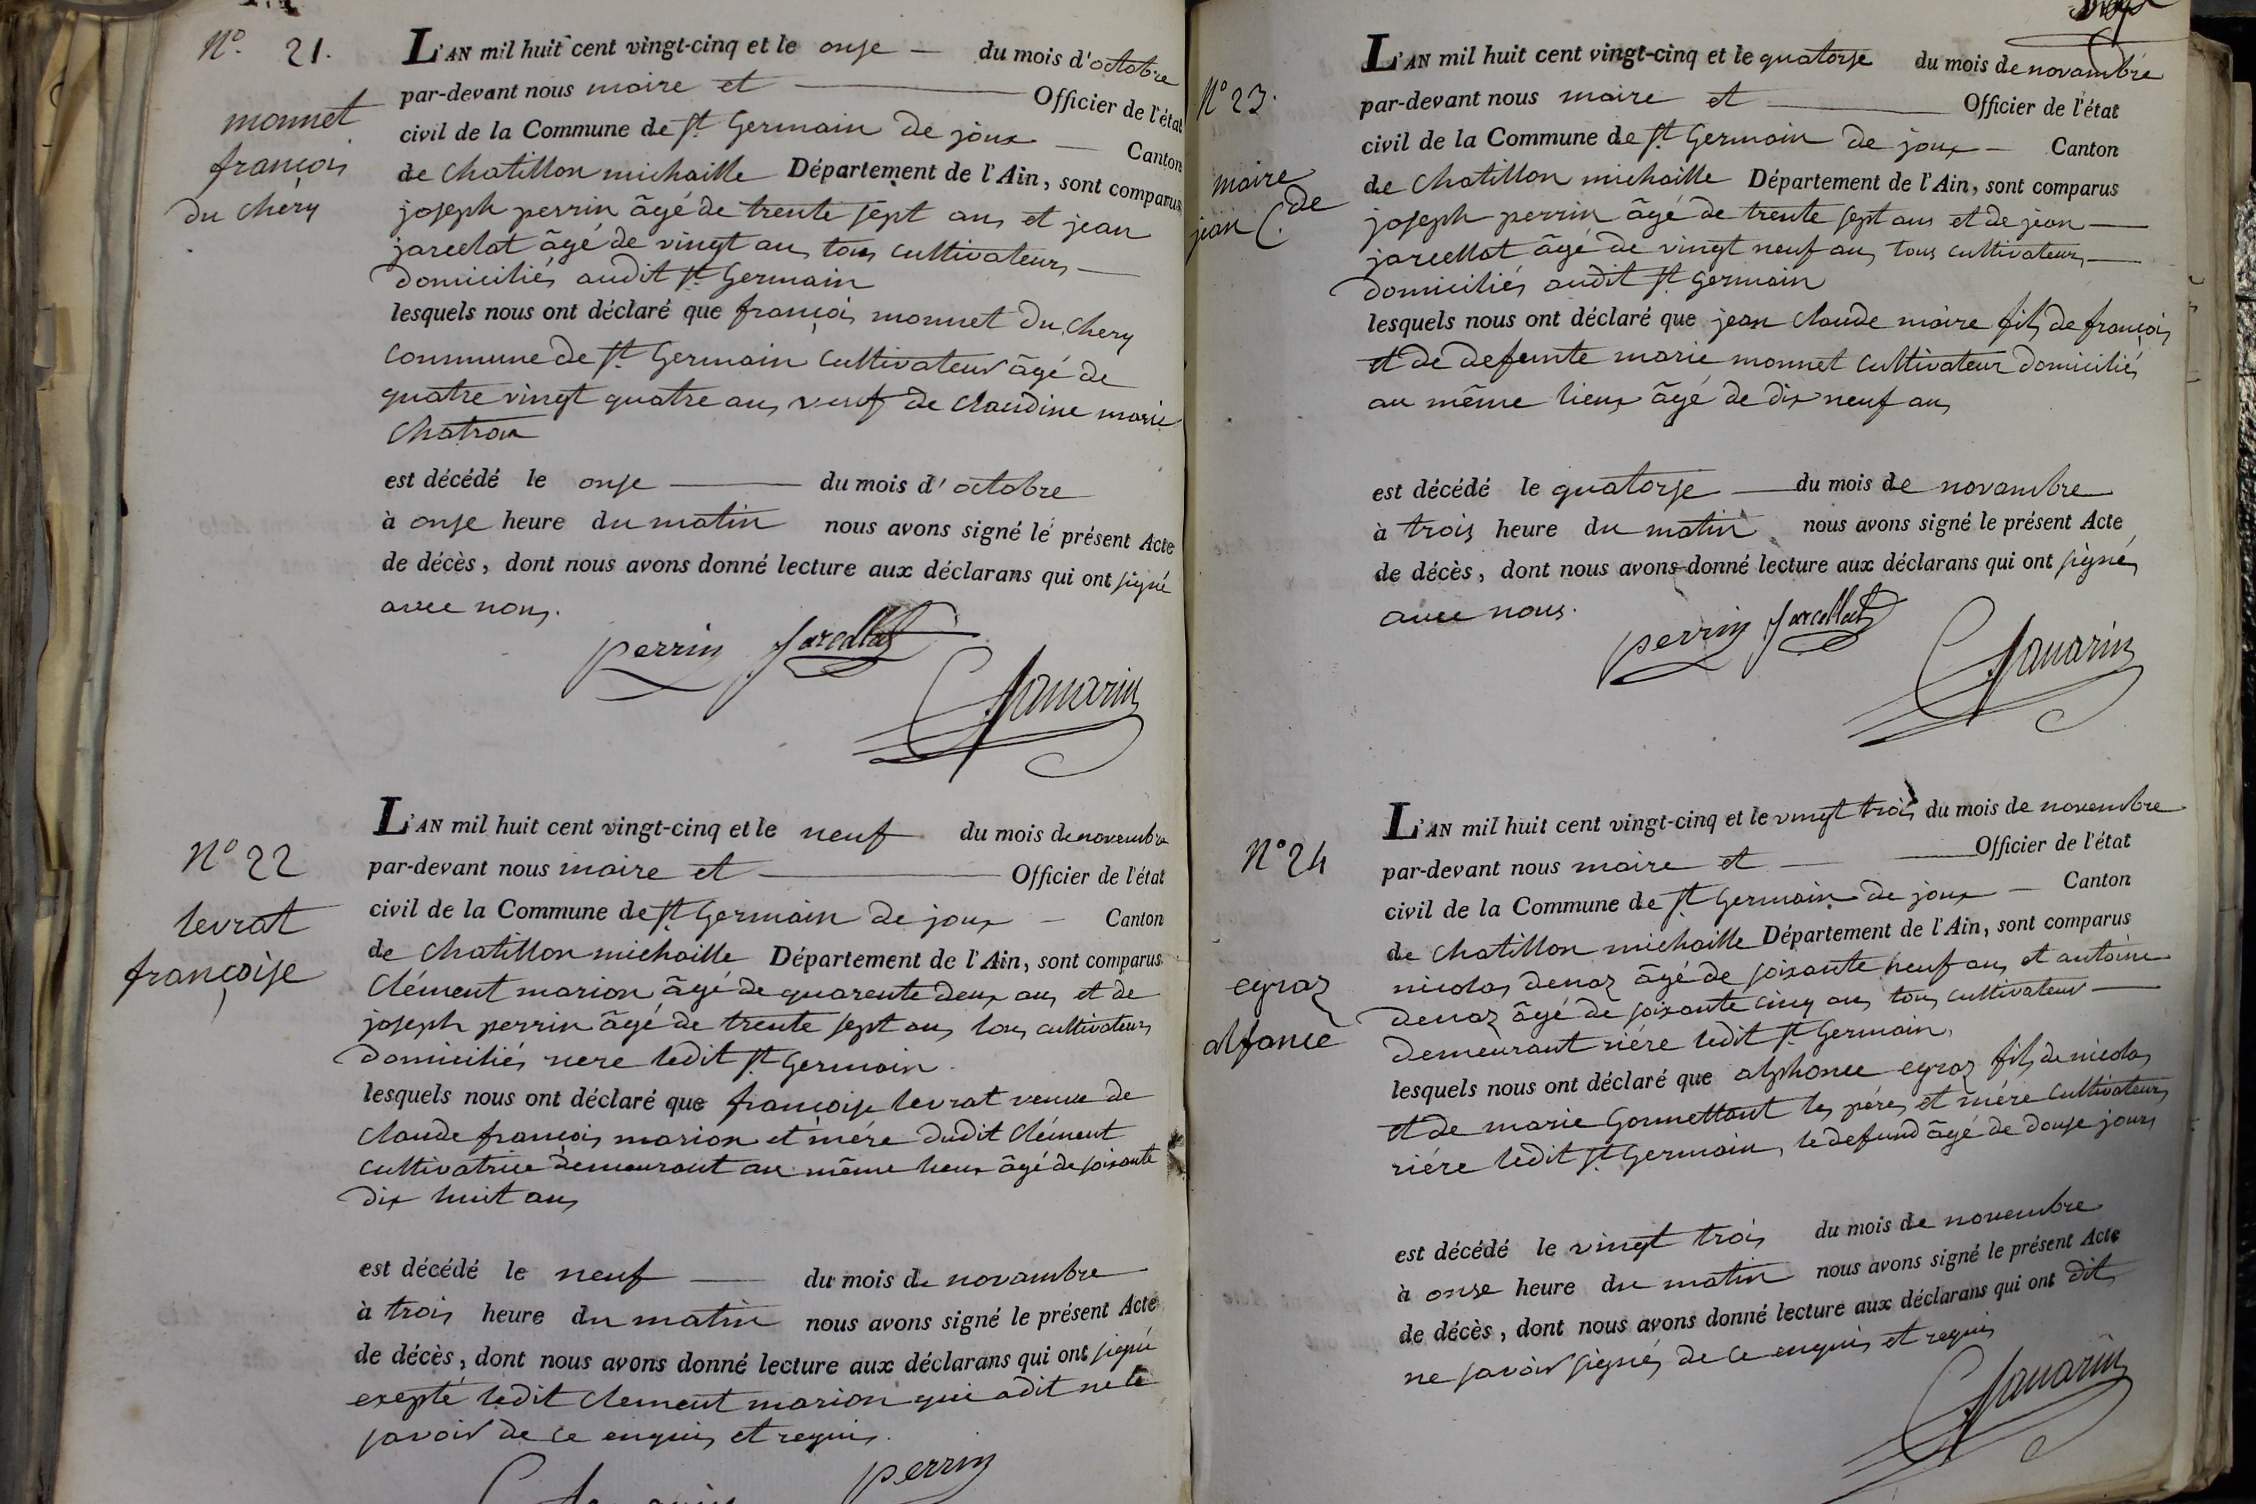 N.o 21.
monnet
françois
du chery
L'AN mil huit cent vingt-cinq et le onse — du mois d'octobre
par-devant nous maire et — Officier de l'état
civil de la Commune de St Germain de joux — Canton
de chatillon michaille Département de l'Ain, sont comparus
joseph perrin âgé de trente sept ans et jean
jarcelat âgé de vingt ans tous cultivateurs —
domiciliés audit St Germain
lesquels nous ont déclaré que françois monnet du chery
commune de St Germain cultivateur âgé de
quatre vingt quatre ans veuf de claudine marie
chatron
est décédé le onse — du mois d'octobre
à onse heure du matin nous avons signé le présent Acte
de décès, dont nous avons donné lecture aux déclarans qui ont signé
avec nous.
perrin Jarcellat
Savarin
N° 22
levrat
françoise
L'AN mil huit cent vingt-cinq et le neuf du mois de novembre
par-devant nous maire et — Officier de l'état
civil de la Commune de St Germain de joux — Canton
de chatillon michaille Département de l'Ain, sont comparus
Clément marion âgé de quarente deux ans et de
joseph perrin âgé de trente sept ans tous cultivateurs
domiciliés rere ledit St Germain.
lesquels nous ont déclaré que françoise levrat veuve de
claude françois marion et mére dudit clément
cultivatrice demeurant au même lieux âgé de soixante
dix huit ans
est décédé le neuf — du mois de novambre
à trois heure du matin nous avons signé le présent Acte
de décès, dont nous avons donné lecture aux déclarans qui ont signé
exepté ledit clement marion qui a dit ne le
savoir de ce enquis et requis.
perrin
N° 23.
maire
jean C.de
L'AN mil huit cent vingt-cinq et le quatorse du mois de novambre
par-devant nous maire et — Officier de l'état
civil de la Commune de St Germain de joux — Canton
de chatillon michaille Département de l'Ain, sont comparus
joseph perrin âgé de trente sept ans et de jean —
jarcellat âgé de vingt neuf ans tous cultivateurs —
domiciliés audit St Germain
lesquels nous ont déclaré que jean claude maire fils de françois
et de defeunte marie monnet cultivateur domiciliés
au même lieux âgé de dix neuf ans
est décédé le quatorse — du mois de novambre
à trois heure du matin nous avons signé le présent Acte
de décès, dont nous avons donné lecture aux déclarans qui ont signés
avec nous.
perrin Jarcellat
Savarin
N° 24
egraz
alfonce
L'AN mil huit cent vingt-cinq et le vingt trois du mois de novembre
par-devant nous maire et — Officier de l'état
civil de la Commune de St Germain de joux — Canton
de chatillon michaille Département de l'Ain, sont comparus
nicolas denaz âgé de soixante neuf ans et antoine
denaz âgé de soixante cinq ans tous cultivateurs —
demeurant riére ledit St Germain,
lesquels nous ont déclaré que alphonce egraz fils de nicolas
et de marie Gonmettant les pére et mére cultivateurs
riére ledit St Germain, le defund âgé de douse jours
est décédé le vingt trois du mois de novembre
à onse heure du matin nous avons signé le présent Acte
de décès, dont nous avons donné lecture aux déclarans qui ont dit
ne savoir signés de ce enquis et requis
Savarin